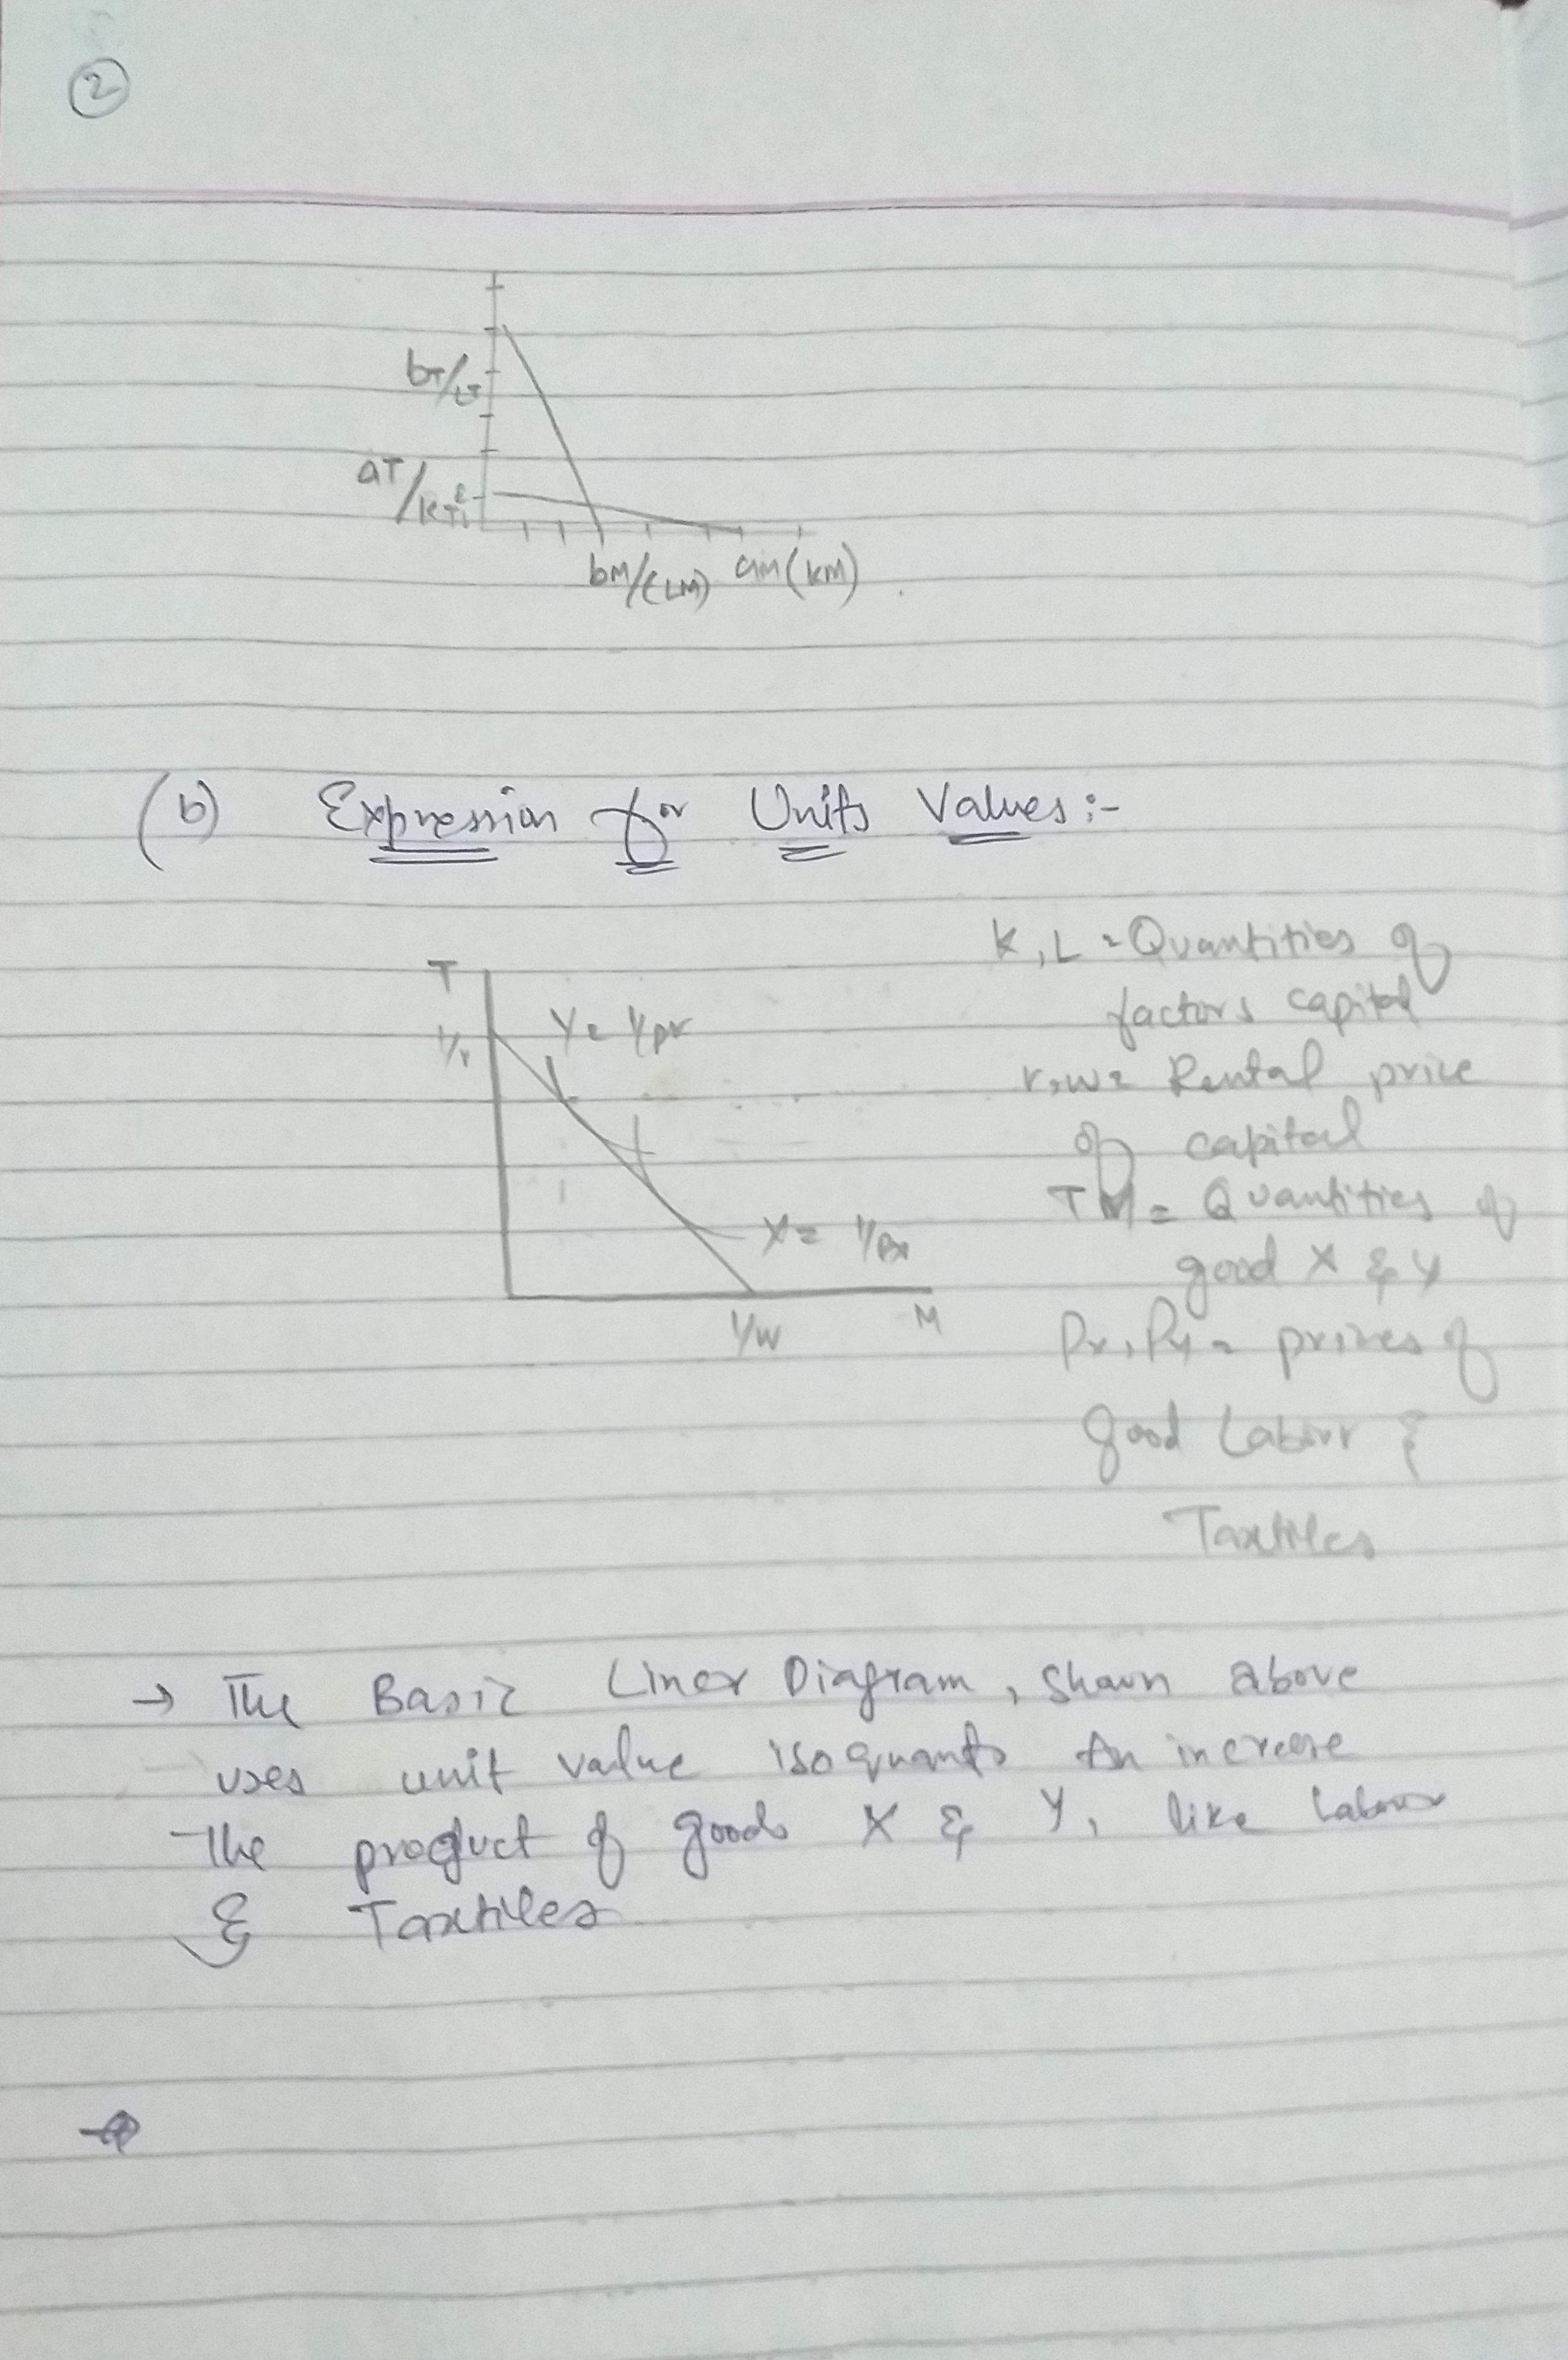 2
bT/LT
aT/KT
bM/(LM) am(KM)
(b) Expression for Units Values :-
T
1/r
Y = 1/pr
X = 1/Px
1/w
M
K, L = Quantities of
factors capital
r, w = Rental price
of capital
T M = Quantities of
good X & Y
Px, Py = prices of
good Labour &
Taxtiles
→ The Basic Liner Diagram, Shown above
uses unit value isoquants An increase
The product of goods X & Y, like Labour
& Taxtiles